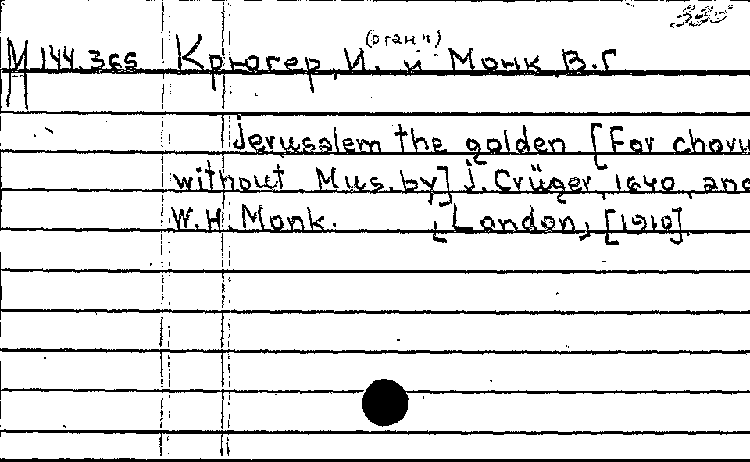 335
(орган ч)
M 144.365 Крюгер, И. и Монк В.Г
Jerusalem the golden. [For chorus
without. Mus. by] J. Crüger, 1640, and
W.H. Monk. [London, [1910].